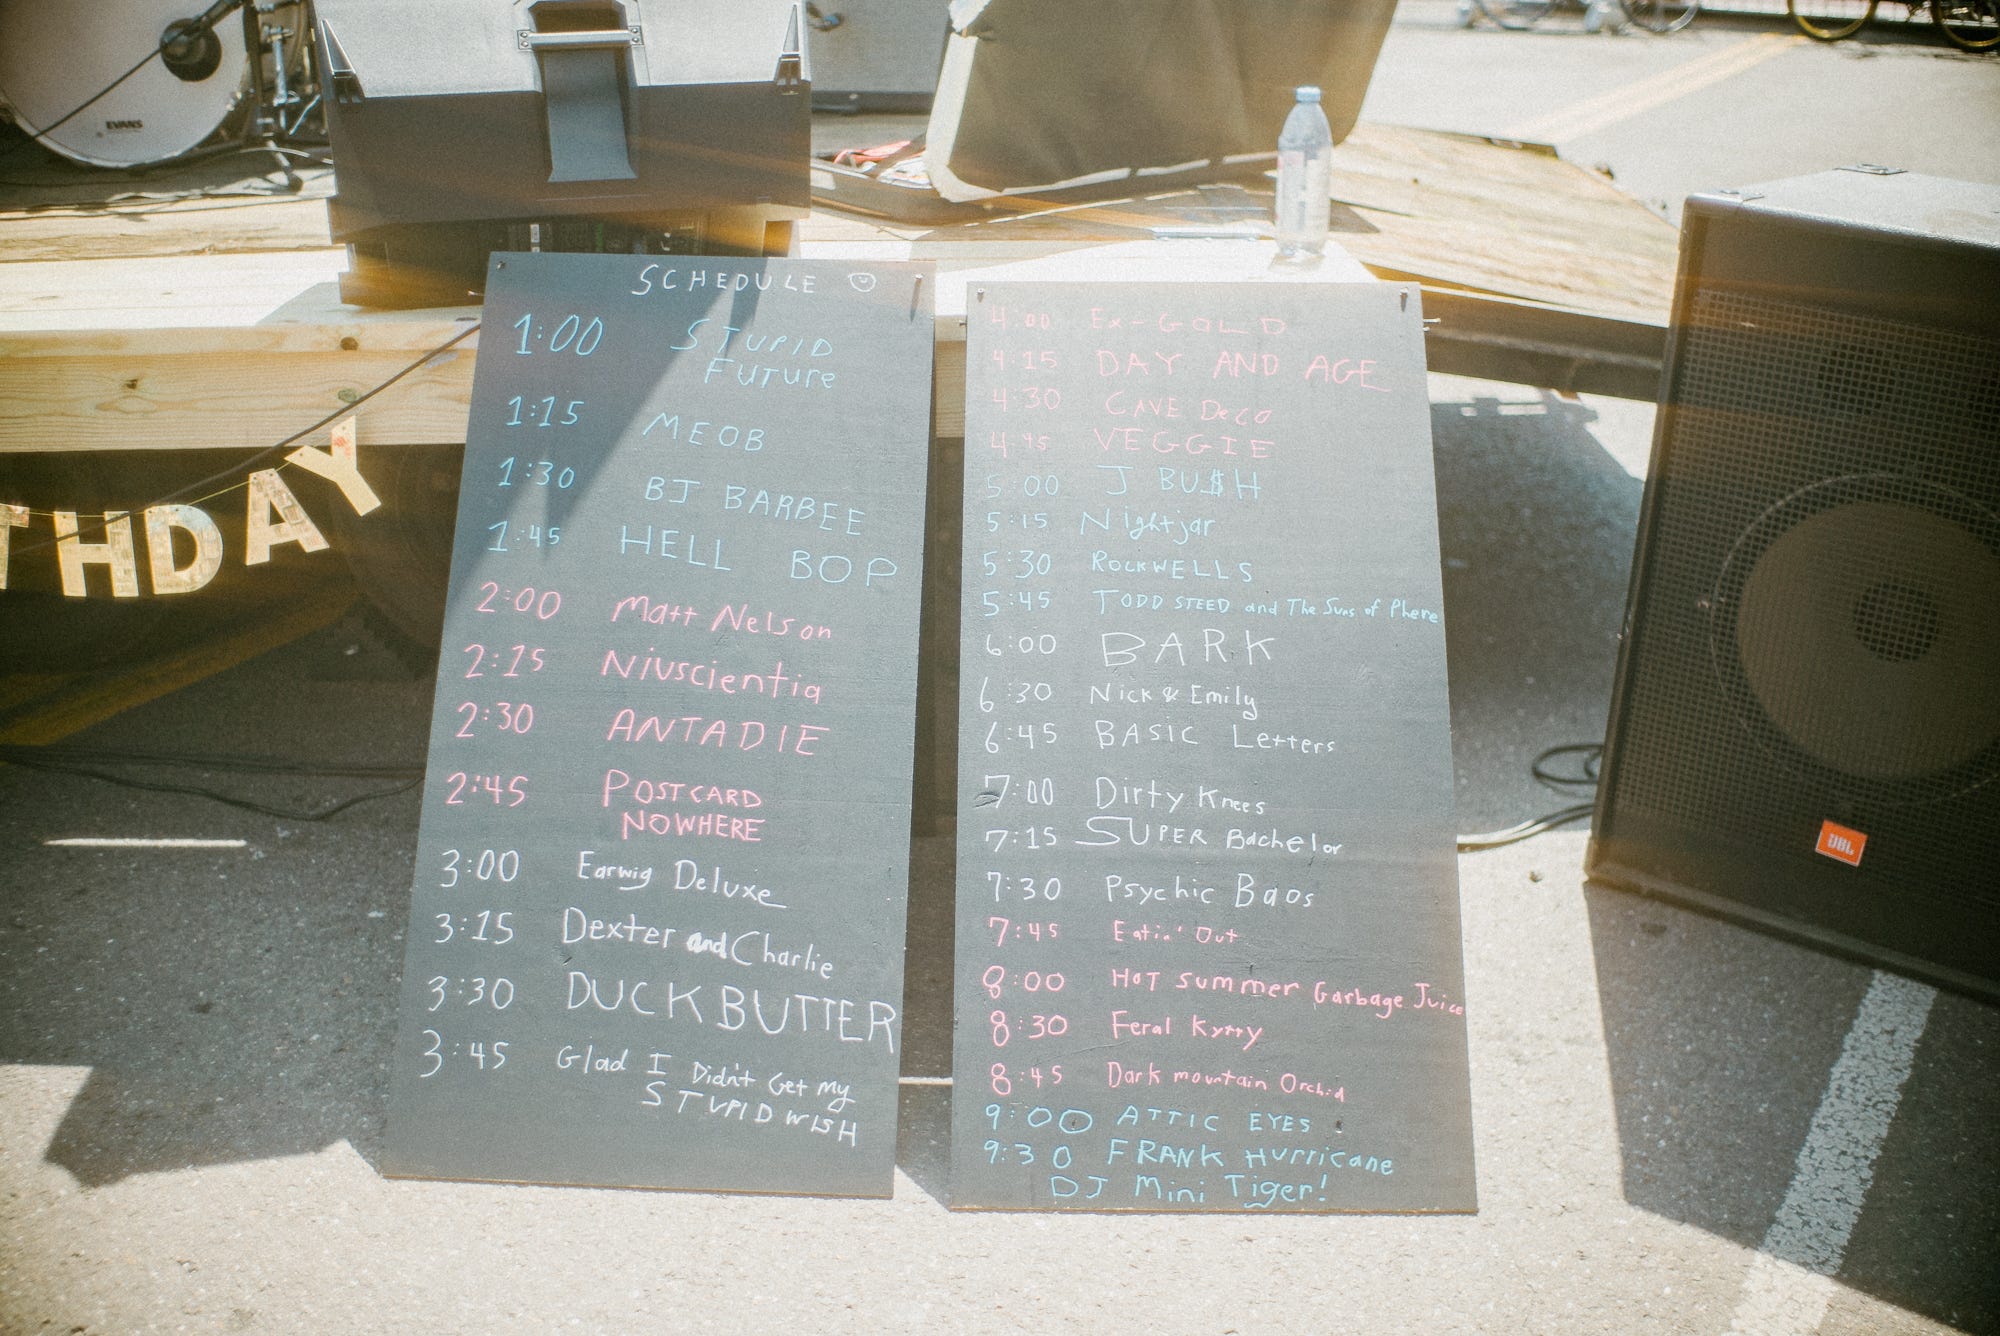 EVANS
THDAY
SCHEDULE
1:00 STUPID
FUTURE
1:15 MEOB
1:30 BJ BARBEE
1:45 HELL BOP
2:00 Matt Nelson
2:15 Niuscientia
2:30 ANTADIE
2:45 POSTCARD
NOWHERE
3:00 Earwig Deluxe
3:15 Dexter and Charlie
3:30 DUCKBUTTER
3:45 Glad I Didn't Get my
STUPID WISH
4:00 Ex-GOLD
4:15 DAY AND AGE
4:30 CAVE DeCo
4:45 VEGGIE
5:00 J BU$H
5:15 Nightjar
5:30 ROCKWELLS
5:45 TODD STEED and The Suns of Phere
6:00 BARK
6:30 Nick & Emily
6:45 BASIC Letters
7:00 Dirty Knees
7:15 SUPER Bachelor
7:30 Psychic Baos
7:45 Eatin' Out
8:00 HOT summer Garbage Juice
8:30 Feral Kytty
8:45 Dark mountain Orchid
9:00 ATTIC EYES
9:30 FRANK Hurricane
DJ Mini Tiger!
JBL